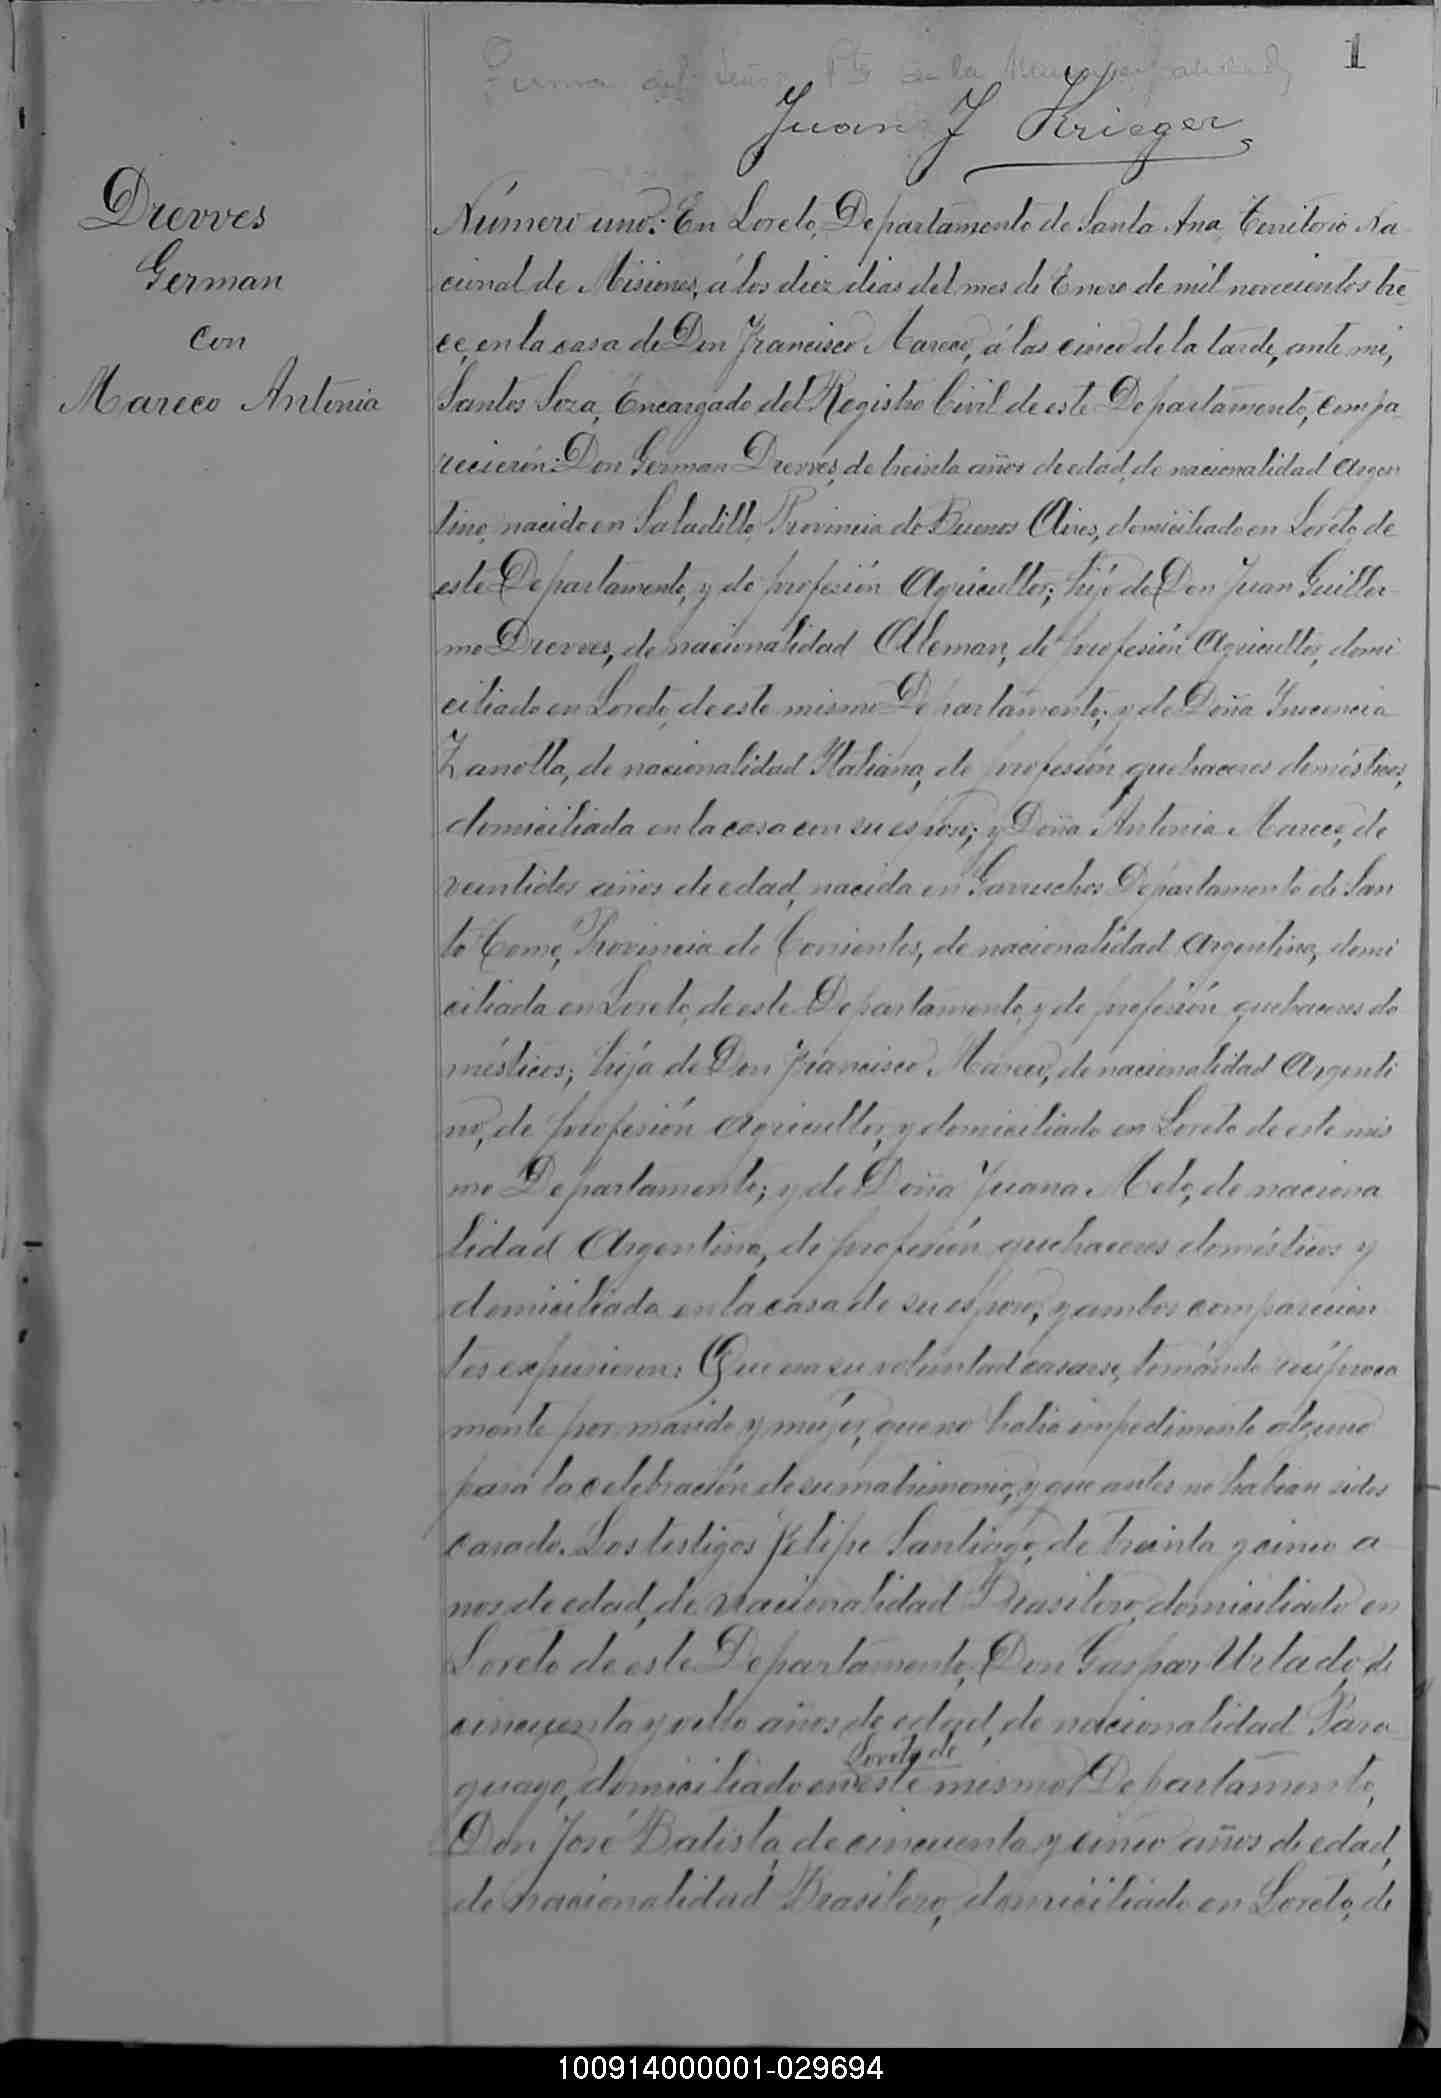 1
Firma del Señor Pte de la Municipalidad
Juan J Krieger
Drevves
German
Con
Mareco Antonia
Número uno: En Loreto, Departamento de Santa Ana, Territorio Na
cional de Misiones, á los diez dias del mes de Enero de mil novecientos tre-
ce, en la casa de Don Francisco Mareco, á las cinco de la tarde, ante mi,
Santos Soza, Encargado del Registro Civil de este Departamento, compa-
recierón: Don German Drevves, de treinta años de edad, de nacionalidad Argen
tino, nacido en Saladillo, Provincia de Buenos Aires, domiciliado en Loreto, de
este Departamento, y de profesión Agricultor; hijo de Don Juan Guiller-
mo Drevves, de nacionalidad Aleman, de profesión Agricultor, domi
ciliado en Loreto, de este mismo Departamento; y de Doña Inocencia
Zanolla, de nacionalidad Italiana, de profesión quehaceres domésticos,
domiciliada en la casa con su esposo; y Doña Antonia Mareco, de
veintidos años de edad, nacida en Garruchos Departamento de San
to Tome, Provincia de Corrientes, de nacionalidad Argentina, domi
ciliada en Loreto, de este Departamento, y de profesión quehaceres do
mésticos; hija de Don Francisco Mareco, de nacionalidad Argenti
no, de profesión Agricultor, y domiciliado en Loreto de este mis
mo Departamento; y de Doña Juana Melo, de naciona
lidad Argentina, de profesión quehaceres domésticos y
domiciliada en la casa de su esposo; y ambos comparecien
tes expusieron: Que era su voluntad casarse, tomándo recíproca
mente por marido y mujer, que no habia impedimento alguno
para la celebración de su matrimonio, y que antes no habian sidos
casado. Los testigos Felipe Santiago, de treinta y cinco a
nos de edad, de nacionalidad Brasilero, domiciliado en
Loreto de este Departamento, Don Gaspar Urtado, de
cincuenta y ocho años de edad, de nacionalidad Para
Loreto, de
guayo, domiciliado en este mismo Departamento,
Don José Batista, de cincuenta y cinco años de edad,
de nacionalidad Brasilero, domiciliado en Loreto, de
100914000001-029694